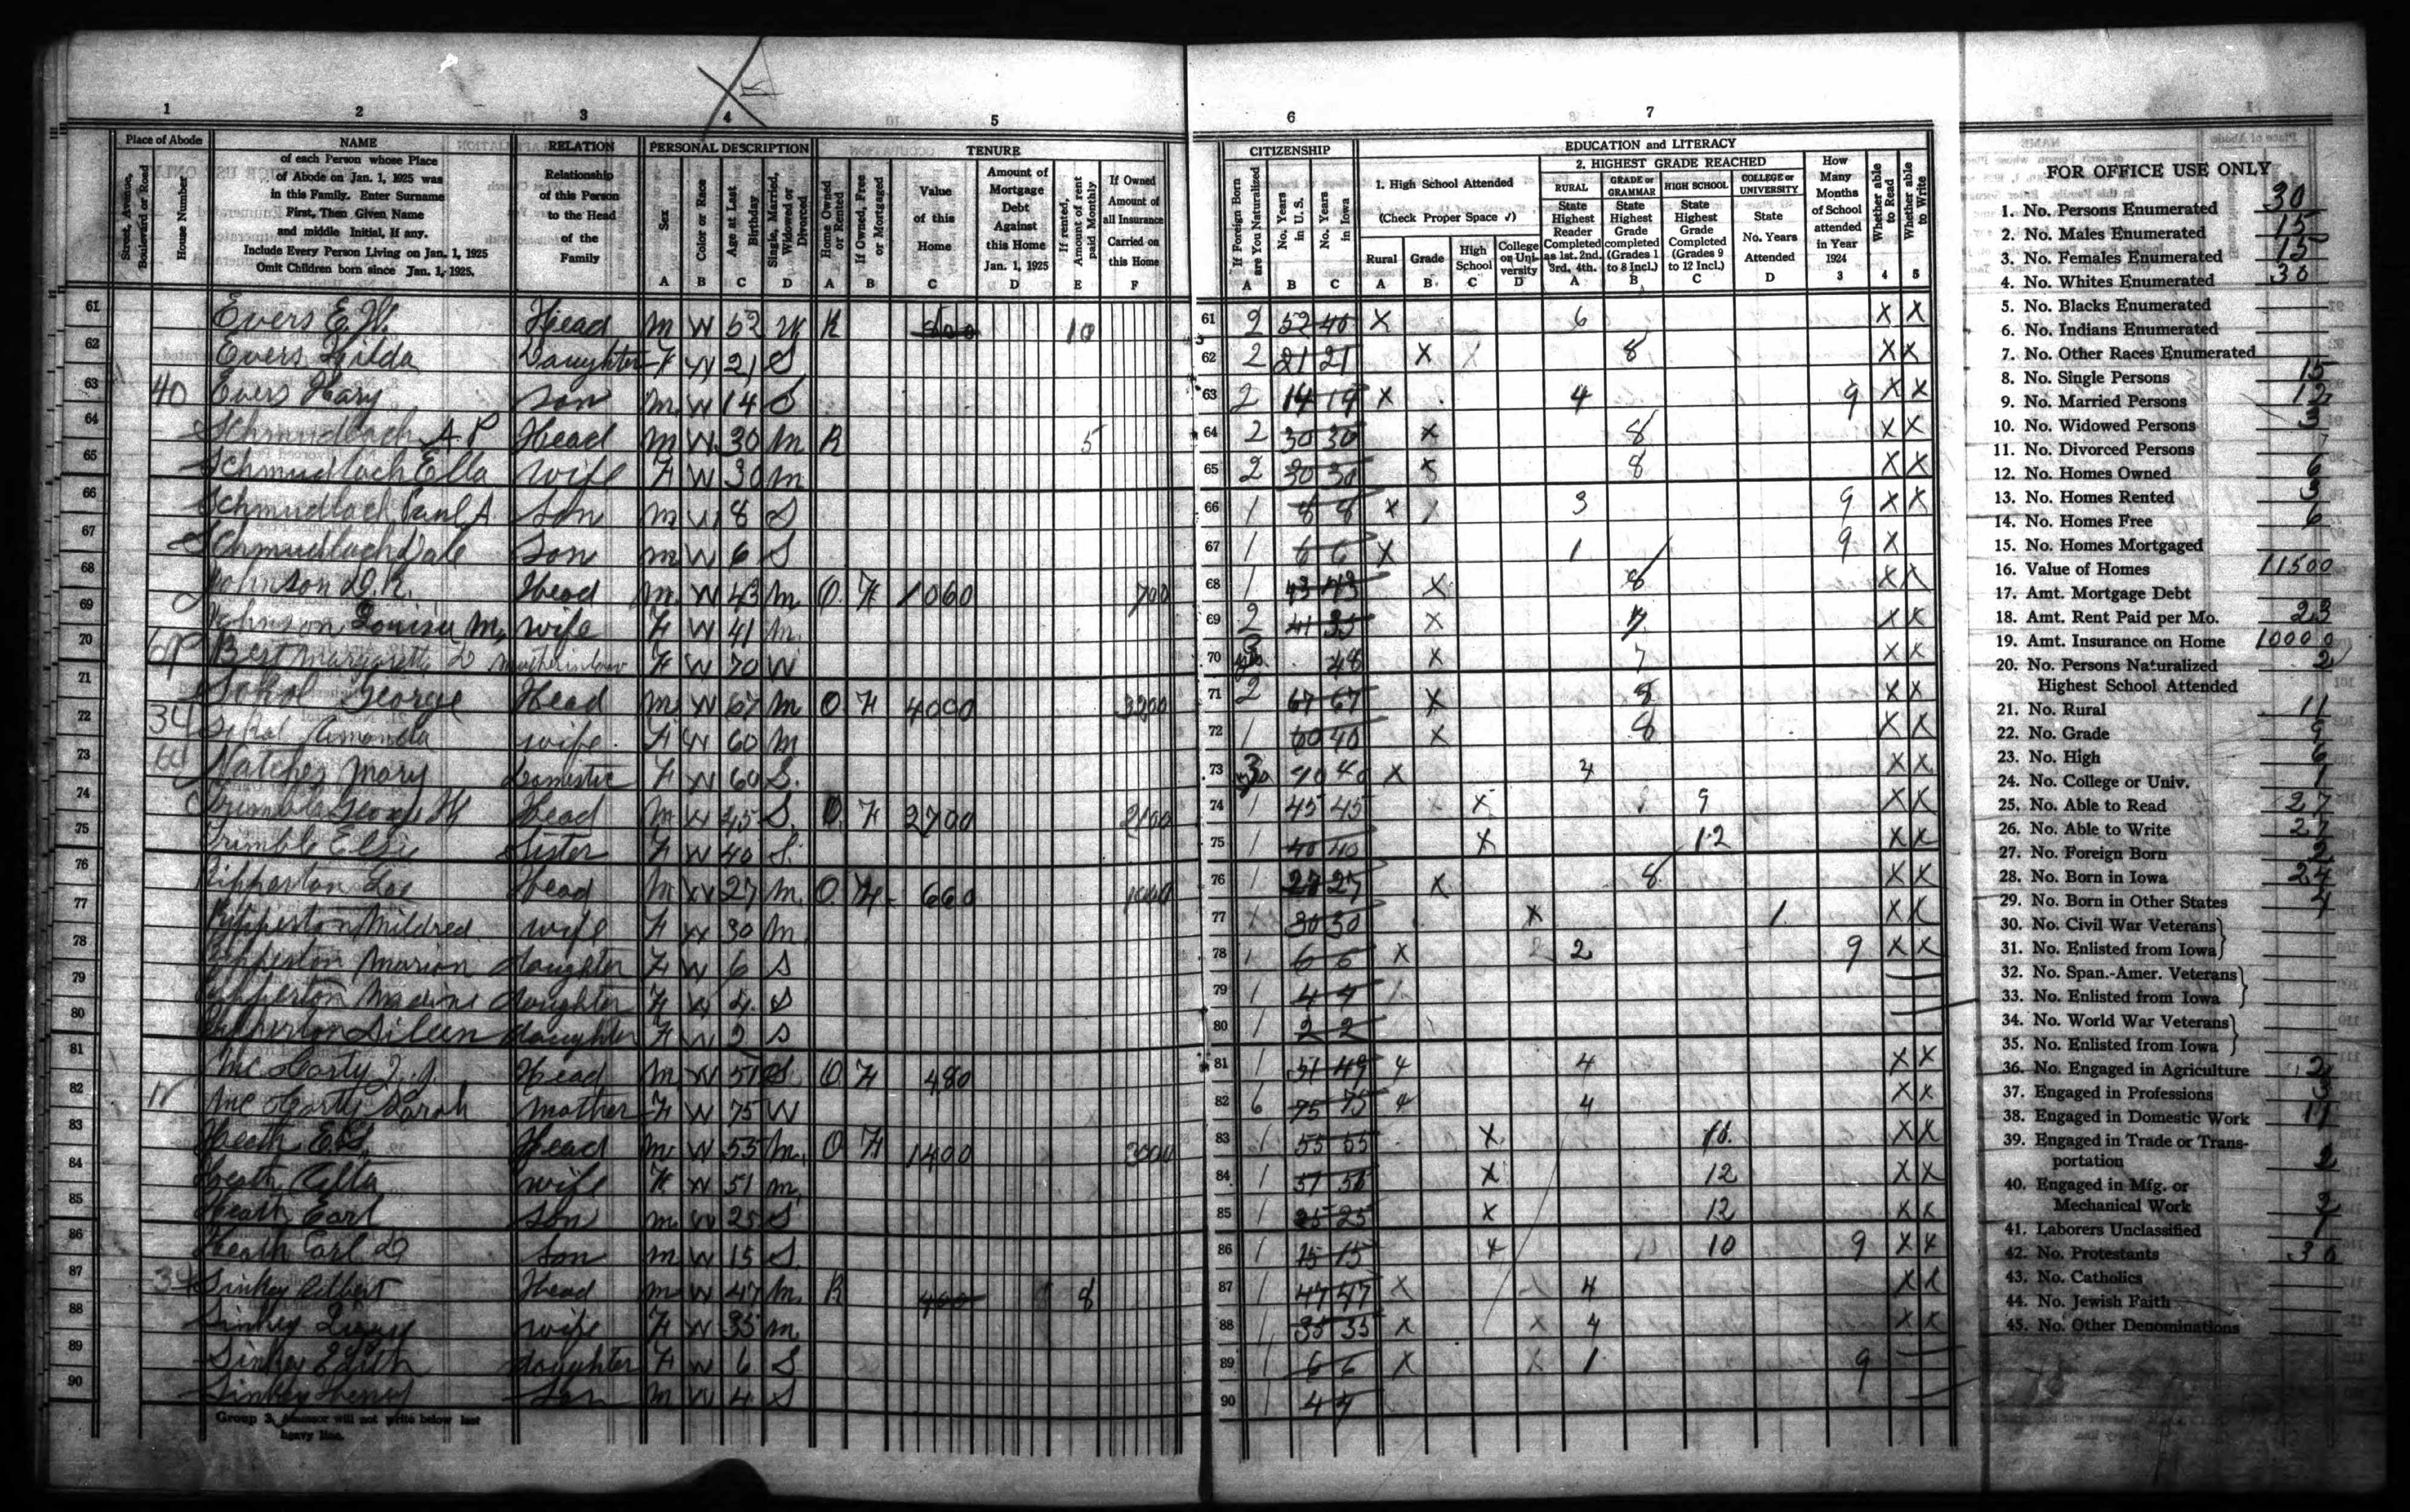 1 2 3 4 5 6 7
Place of Abode NAME RELATION PERSONAL DESCRIPTION TENURE CITIZENSHIP EDUCATION and LITERACY
Street, Avenue, Boulevard or Road
House Number
of each Person whose Place
of Abode on Jan. 1, 1925 was
in this Family. Enter Surname
First, Then Given Name
and middle Initial, If any.
Include Every Person Living on Jan. 1, 1925
Omit Children born since Jan. 1, 1925.
Relationship
of this Person
to the Head
of the
Family
Sex
Color or Race
Age at Last Birthday
Single, Married, Widowed or Divorced
Home Owned or Rented
If Owned, Free or Mortgaged
Value
of this
Home
Amount of
Mortgage
Debt
Against
this Home
Jan. 1, 1925
If rented, Amount of rent paid Monthly
If Owned
Amount of
all Insurance
Carried on
this Home
If Foreign Born are You Naturalized
No. Years in U. S.
No. Years in Iowa
1. High School Attended
(Check Proper Space ✓)
Rural Grade High School College or University
2. HIGHEST GRADE REACHED
RURAL
State Highest Reader Completed as 1st. 2nd. 3rd, 4th.
GRADE or GRAMMAR
State Highest Grade completed (Grades 1 to 8 Incl.)
HIGH SCHOOL
State Highest Grade Completed (Grades 9 to 12 Incl.)
COLLEGE or UNIVERSITY
State No. Years Attended
How Many Months of School attended in Year 1924
Whether able to Read
Whether able to Write
A B C D A B C D E F A B C A B C D A B C D 3 4 5
61 Evers E.W. Head M W 52 W R 500 10 61 2 52 40 X 6 X X
62 Evers Hilda Daughter F W 21 S 62 2 21 21 X 8 X X
63 40 Evers Hary Son M W 14 S 63 2 14 14 X 4 9 X X
64 Schmudlach A.P Head M W 30 M R 5 64 2 30 30 X 8 X X
65 Schmudlach Ella Wife F W 30 M 65 2 30 30 8 X X
66 Schmudlach Paul A Son M W 8 S 66 1 8 8 X 3 9 X X
67 Schmudlach Dale Son M W 6 S 67 1 6 6 X 1 9 X
68 Johnson D.R. Head M W 43 M O F 1060 700 68 1 43 43 X 8 X X
69 Johnson Louisa M. Wife F W 41 M 69 2 41 35 X X X
70 Best Margarette D Mother in law F W 70 W 70 48 X 7 X X
71 Sokol George Head M W 67 M O F 4000 3200 71 2 67 67 X 8 X X
72 34 Sokol Amanda Wife F W 60 M 72 1 60 40 X 8 X X
73 Natches Mary Domestic F W 60 S. 73 3 40 40 X 4 X X
74 Trimble George H Head M W 45 S. O F 2700 2100 74 1 45 45 X 9 X X
75 Trimble Elsie Sister F W 40 S. 75 1 40 40 X 12 X X
76 Ripperton Head M W 27 M. O F 660 76 1 27 27 X 8 X X
77 Ripperton Mildred Wife F W 30 M 77 1 30 30 X 1. X X
78 Ripperton Marion daughter F W 6 S 78 1 6 6 X 2 9 X X
79 Ripperton Maxine daughter F W 4 S 79 1 4 4
80 Ripperton Aileen daughter F W 2 S 80 1 2 2
81 Mc Carty Head M W 51 S O F 480 81 1 51 49 4 X X
82 Mc Carty Sarah Mother F W 75 W 82 6 75 75 4 X X
83 Heath E.S. Head M W 55 M. O F 1400 3000 83 1 55 55 X X X
84 Heath Wife F W 51 M. 84 1 X 12 X X
85 Heath Earl Son M W 25 S 85 1 25 25 X 12 X X
86 Heath Carl D Son M W 15 S. 86 1 15 15 X 10 9 X X
87 Sinkey Albert Head M W 47 M. R 400 8 87 1 47 47 X 4 X X
88 Sinkey Wife F W 35 M 88 1 35 35 X 4 X X
89 Sinkey Edith daughter F W 6 S 89 1 6 6 X 1 9
90 Sinkey Henry Son M W 4 S 90 1 4 4
Group 3, Assessor will not write below last
heavy line.
FOR OFFICE USE ONLY
1. No. Persons Enumerated 30
2. No. Males Enumerated 15
3. No. Females Enumerated 15
4. No. Whites Enumerated 30
5. No. Blacks Enumerated
6. No. Indians Enumerated
7. No. Other Races Enumerated
8. No. Single Persons 15
9. No. Married Persons 12
10. No. Widowed Persons 3
11. No. Divorced Persons
12. No. Homes Owned 6
13. No. Homes Rented 3
14. No. Homes Free 6
15. No. Homes Mortgaged
16. Value of Homes 11500
17. Amt. Mortgage Debt
18. Amt. Rent Paid per Mo. 23
19. Amt. Insurance on Home 10000
20. No. Persons Naturalized 2
Highest School Attended
21. No. Rural 11
22. No. Grade 9
23. No. High 6
24. No. College or Univ. 1
25. No. Able to Read 27
26. No. Able to Write 27
27. No. Foreign Born 2
28. No. Born in Iowa 24
29. No. Born in Other States 4
30. No. Civil War Veterans
31. No. Enlisted from Iowa
32. No. Span.-Amer. Veterans
33. No. Enlisted from Iowa
34. No. World War Veterans
35. No. Enlisted from Iowa
36. No. Engaged in Agriculture 2
37. Engaged in Professions 3
38. Engaged in Domestic Work
39. Engaged in Trade or Transportation 2
40. Engaged in Mfg. or
Mechanical Work 2
41. Laborers Unclassified 1
42. No. Protestants 30
43. No. Catholics
44. No. Jewish Faith
45. No. Other Denominations